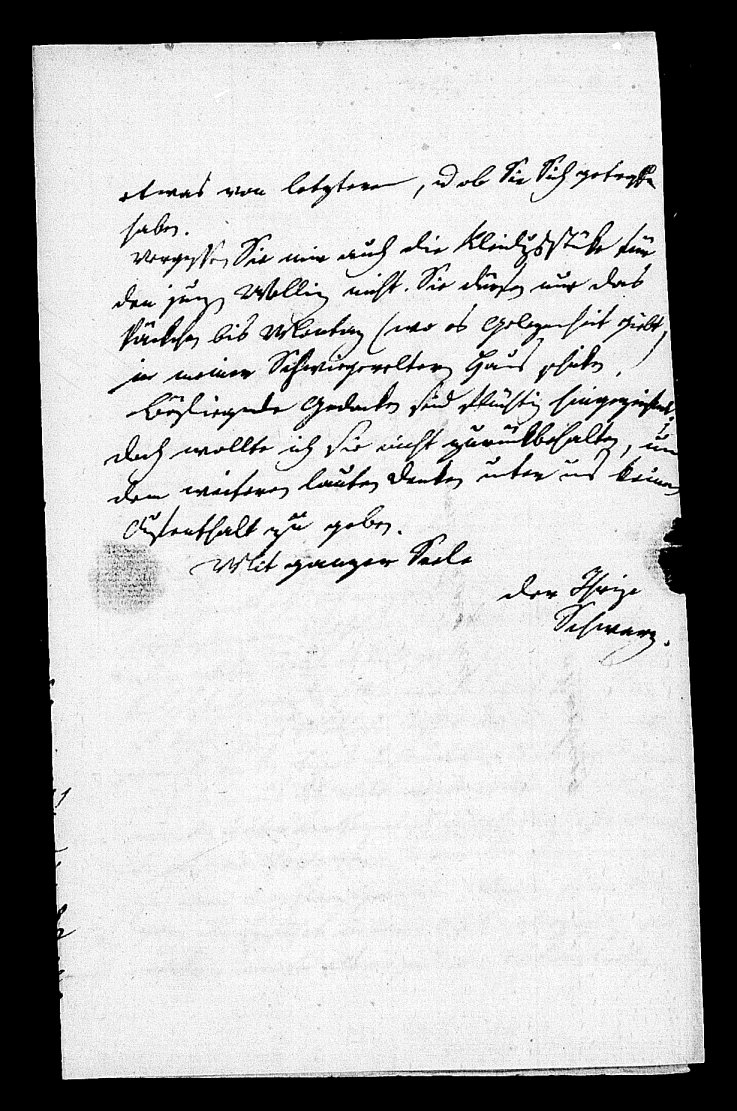 etwas von letzterem, u ob Sie Sich getroffen
haben.
Vergessen Sie mir auch die Kleidungsstüke für
den jungen Wolling nicht. Sie dürfen nur das
Päckchen bis Montag (wo es Gelegenheit giebt)
in meiner Schwiegereltern Haus schiken.
Beyliegende Gedanken sind flüchtig hingezeichnet.
doch wollte ich sie nicht zurückbehalten, um
dem weiteren lauten Denken unter uns keinen
Aufenthalt zu geben.
Mit ganzer Seele
der Ihrige
Schwarz.